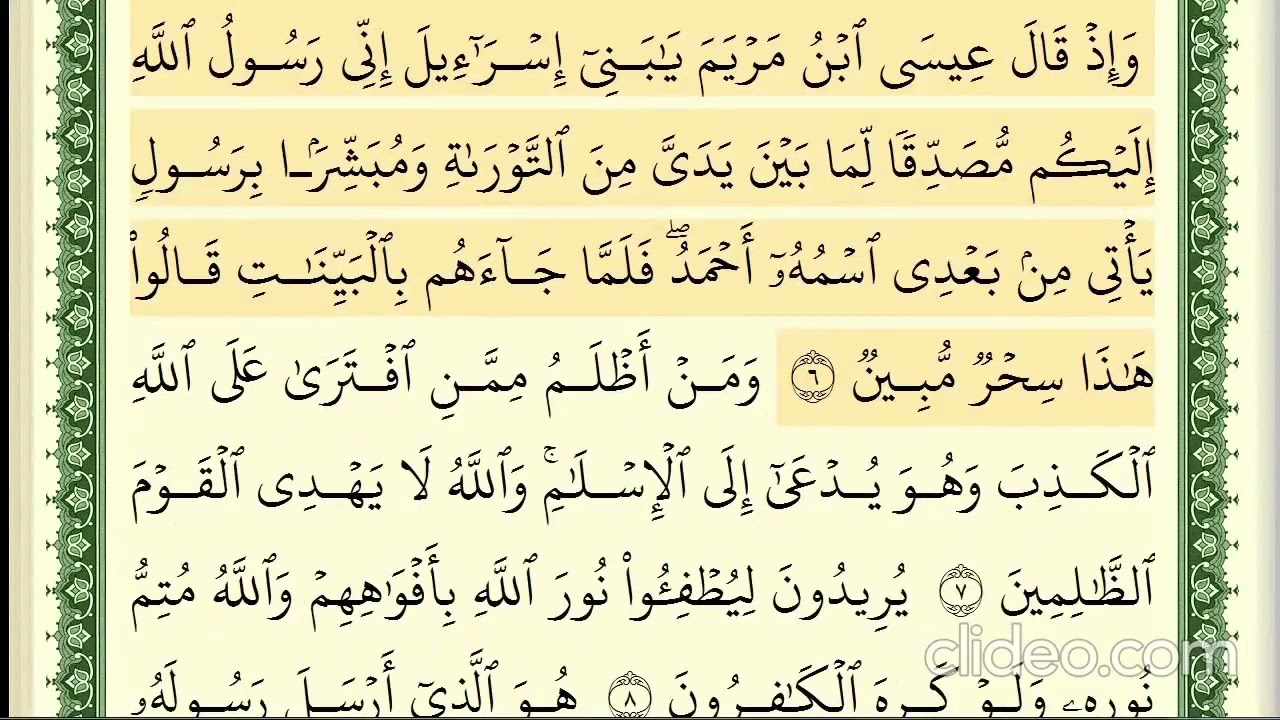 وَإِذۡ قَالَ عِيسَى ٱبۡنُ مَرۡيَمَ يَـٰبَنِيٓ إِسۡرَـٰٓءِيلَ إِنِّي رَسُولُ ٱللَّهِ
إِلَيۡكُم مُّصَدِّقٗا لِّمَا بَيۡنَ يَدَيَّ مِنَ ٱلتَّوۡرَىٰةِ وَمُبَشِّرَۢا بِرَسُولٖ
يَأۡتِي مِنۢ بَعۡدِي ٱسۡمُهُۥٓ أَحۡمَدُۖ فَلَمَّا جَآءَهُم بِٱلۡبَيِّنَـٰتِ قَالُواْ
هَـٰذَا سِحۡرٞ مُّبِينٞ ٦ وَمَنۡ أَظۡلَمُ مِمَّنِ ٱفۡتَرَىٰ عَلَى ٱللَّهِ
ٱلۡكَذِبَ وَهُوَ يُدۡعَىٰٓ إِلَى ٱلۡإِسۡلَـٰمِۚ وَٱللَّهُ لَا يَهۡدِي ٱلۡقَوۡمَ
ٱلظَّـٰلِمِينَ ٧ يُرِيدُونَ لِيُطۡفِـُٔواْ نُورَ ٱللَّهِ بِأَفۡوَٰهِهِمۡ وَٱللَّهُ مُتِمُّ
نُورِهِۦ وَلَوۡ كَرِهَ ٱلۡكَـٰفِرُونَ ٨ هُوَ ٱلَّذِيٓ أَرۡسَلَ رَسُولَهُۥ
clideo.com